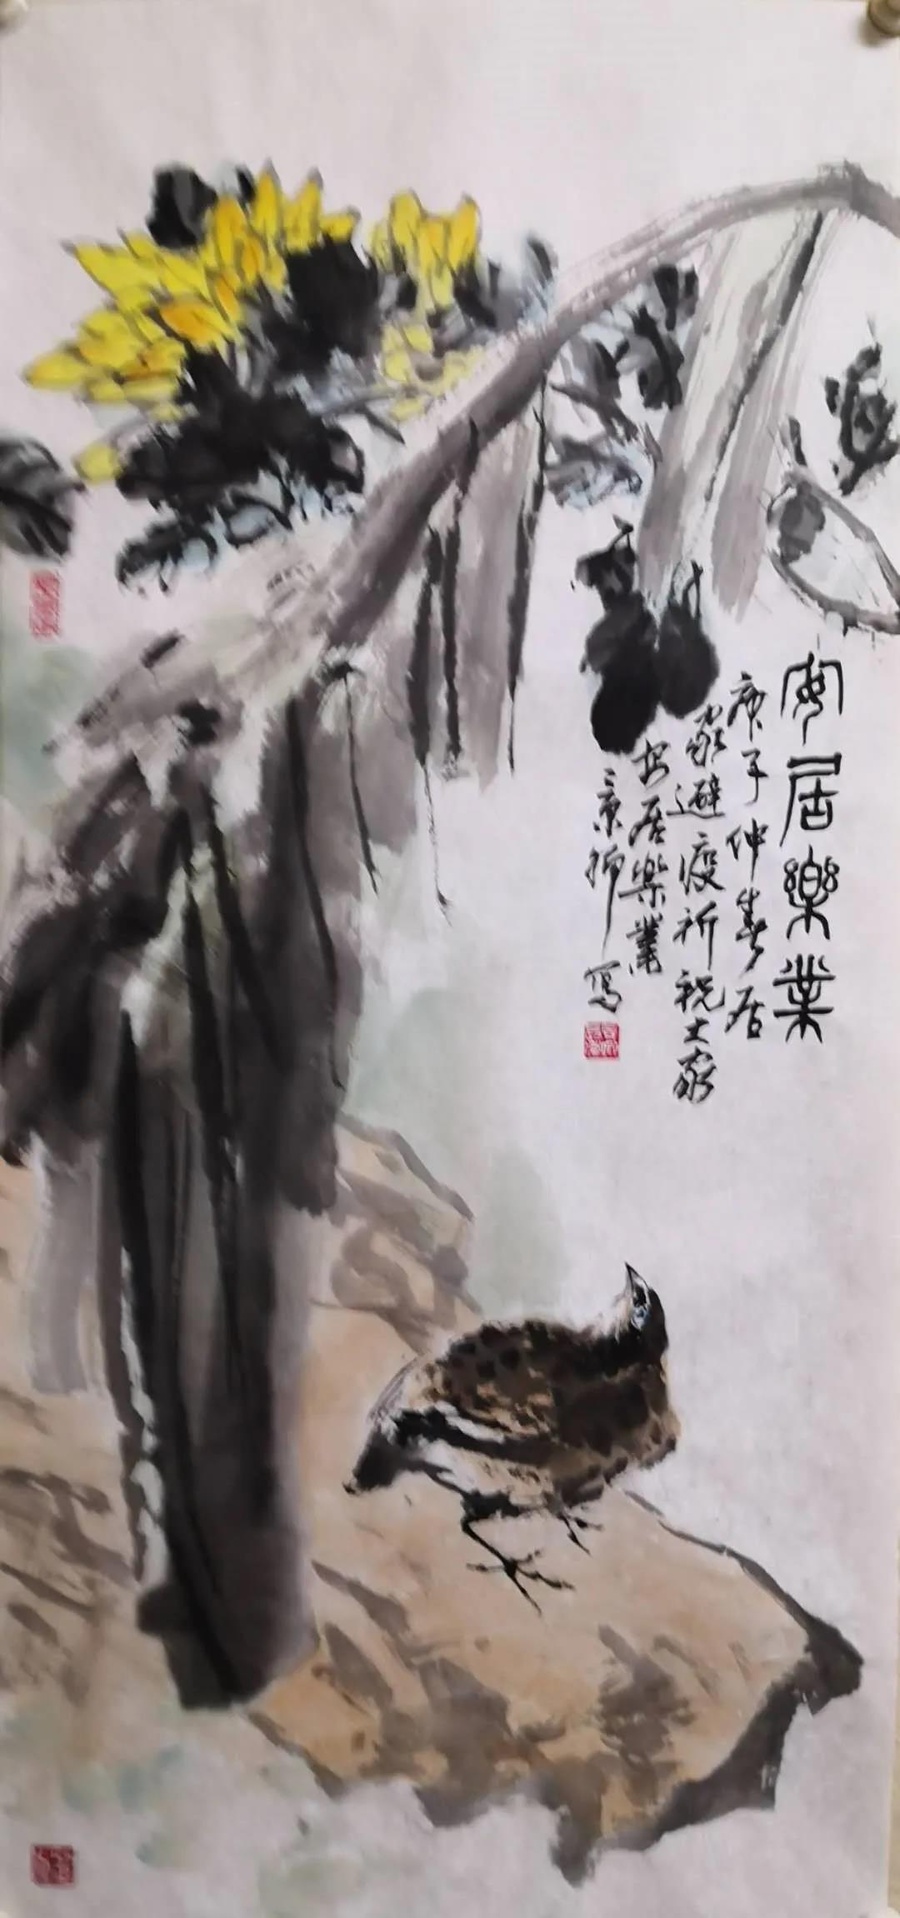 安居樂業
庚子仲春居
家避疫祈祝大家
安居樂業
景㧑寫